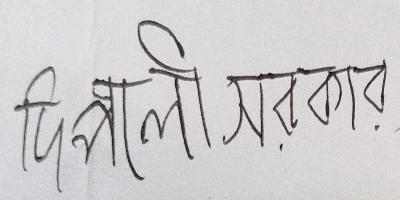 দিপালী সরকার